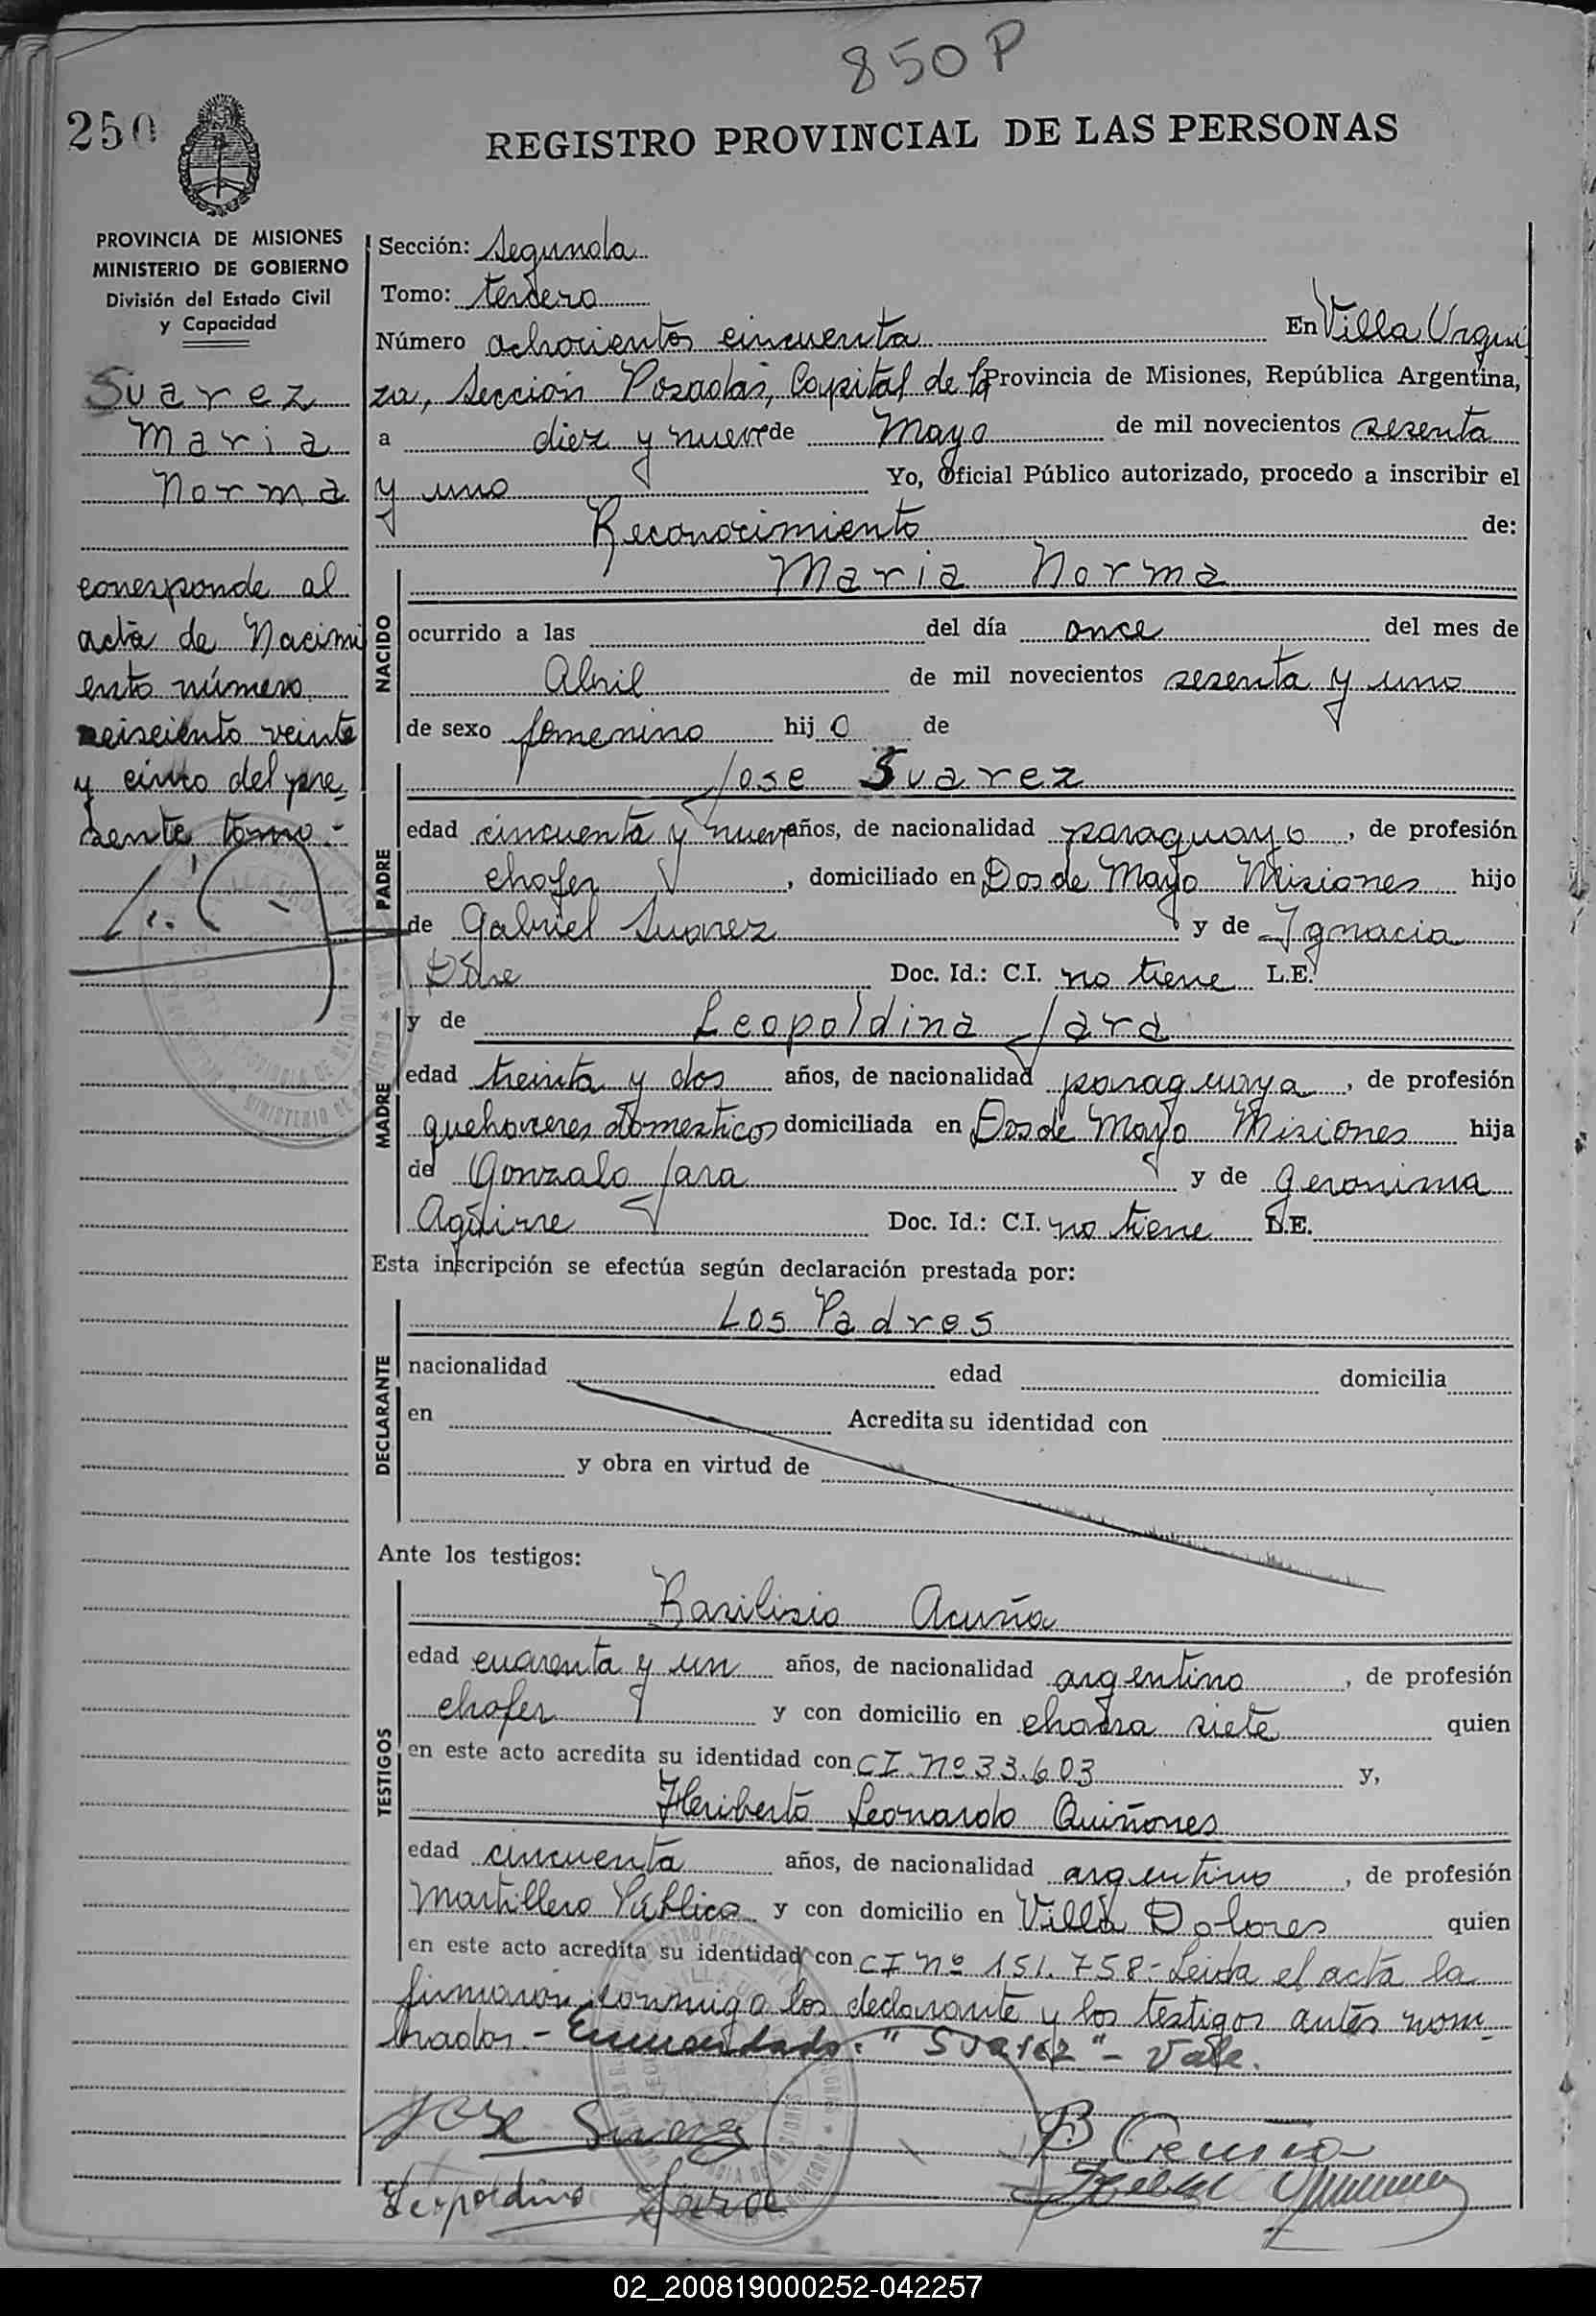 850 P
250
REGISTRO PROVINCIAL DE LAS PERSONAS
PROVINCIA DE MISIONES
MINISTERIO DE GOBIERNO
División del Estado Civil
y Capacidad
Suarez
Maria
Norma
corresponde al
acta de Nacimi
ento número
seisciento veinte
y cinco del pre-
sente tomo.-
Sección: Segunda
Tomo: tercero
Número ochocientos cincuenta En Villa Urqui
za, Sección Posadas, Capital de la Provincia de Misiones, República Argentina,
a diez y nueve de Mayo de mil novecientos sesenta
y uno Yo, Oficial Público autorizado, procedo a inscribir el
Reconocimiento de:
NACIDO
Maria Norma
ocurrido a las del día once del mes de
Abril de mil novecientos sesenta y uno
de sexo femenino hij o de
PADRE
Jose Suarez
edad cincuenta y nueve años, de nacionalidad paraguayo, de profesión
chofer, domiciliado en Dos de Mayo Misiones hijo
de Gabriel Suarez y de Ignacia
Doc. Id.: C.I. no tiene L.E.
MADRE
y de Leopoldina Jara
edad treinta y dos años, de nacionalidad paraguaya, de profesión
quehaceres domesticos domiciliada en Dos de Mayo Misiones hija
de Gonzalo Jara y de Geronima
Aguirre Doc. Id.: C.I. no tiene L.E.
Esta inscripción se efectúa según declaración prestada por:
DECLARANTE
Los Padres
nacionalidad edad domicilia
en Acredita su identidad con
y obra en virtud de
Ante los testigos:
TESTIGOS
Basilisio Acuña
edad cuarenta y un años, de nacionalidad argentino, de profesión
chofer y con domicilio en chacra siete quien
en este acto acredita su identidad con CI. Nº 33.603 y,
Heriberto Leonardo Quiñones
edad cincuenta años, de nacionalidad argentino, de profesión
Martillero Público y con domicilio en Villa Dolores quien
en este acto acredita su identidad con CI Nº 151.758.- Leida el acta la
firmaron conmigo los declarante y los testigos antes nom-
brados.- Enmendado: "Suarez" - Vale.
Jose Suarez
B Acuña
Leopoldina Jara
02_200819000252-042257